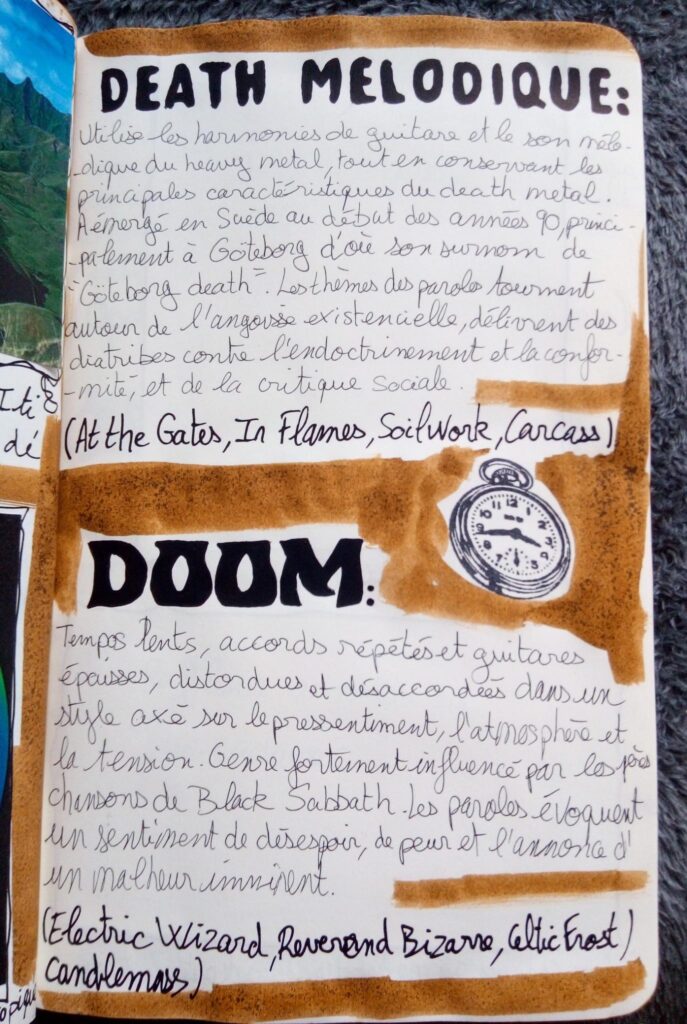 DEATH MELODIQUE:
Utilise les harmonies de guitare et le son mélo-
-dique du heavy metal, tout en conservant les
principales caractéristiques du death metal.
A émergé en Suède au début des années 90, princi-
-palement à Göteborg d'où son surnom de
"Göteborg death". Les thèmes des paroles tournent
autour de l'angoisse existencielle, délivrent des
diatribes contre l'endoctrinement et la confor-
-mité, et de la critique sociale.
(At the Gates, In Flames, Soilwork, Carcass)
DOOM:
Tempos lents, accords répétés et guitares
épaisses, distordues et désaccordées dans un
style axé sur le pressentiment, l'atmosphère et
la tension. Genre fortement influencé par les 1ères
chansons de Black Sabbath. Les paroles évoquent
un sentiment de désespoir, de peur et l'annonce d'
un malheur imminent.
(Electric Wizard, Reverend Bizarre, Celtic Frost)
Candlemass)
Iti
dé